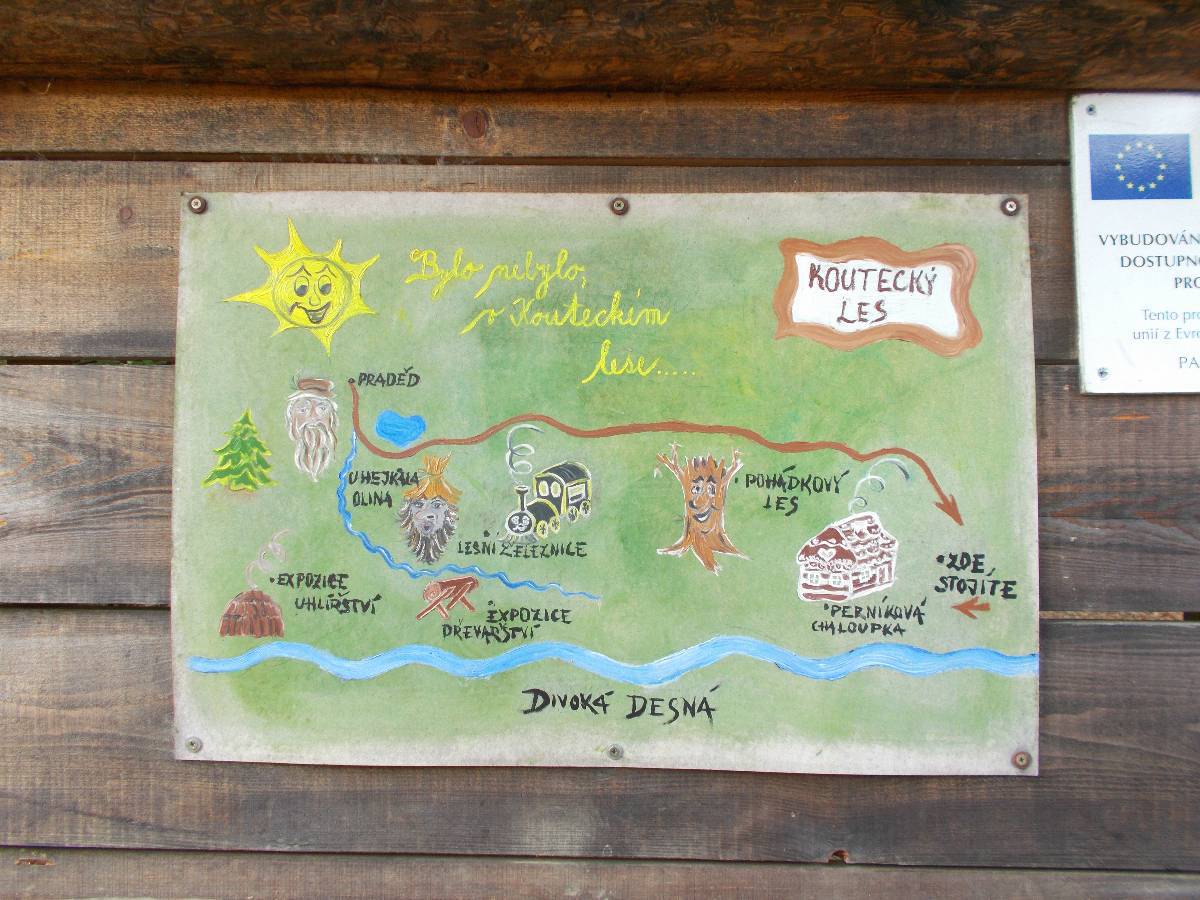 Bylo nebylo,
v Kouteckém
lese.....
KOUTECKÝ
LES
PRADĚD
U HEJKALA
OLINA
LESNÍ ŽELEZNICE
POHÁDKOVÝ
LES
EXPOZICE
UHLÍŘSTVÍ
EXPOZICE
DŘEVAŘSTVÍ
PERNÍKOVÁ
CHALOUPKA
ZDE,
STOJÍTE
DIVOKÁ DESNÁ
VYBUDOVÁN
DOSTUPNO
PRO
Tento pro
unií z Evro
PA